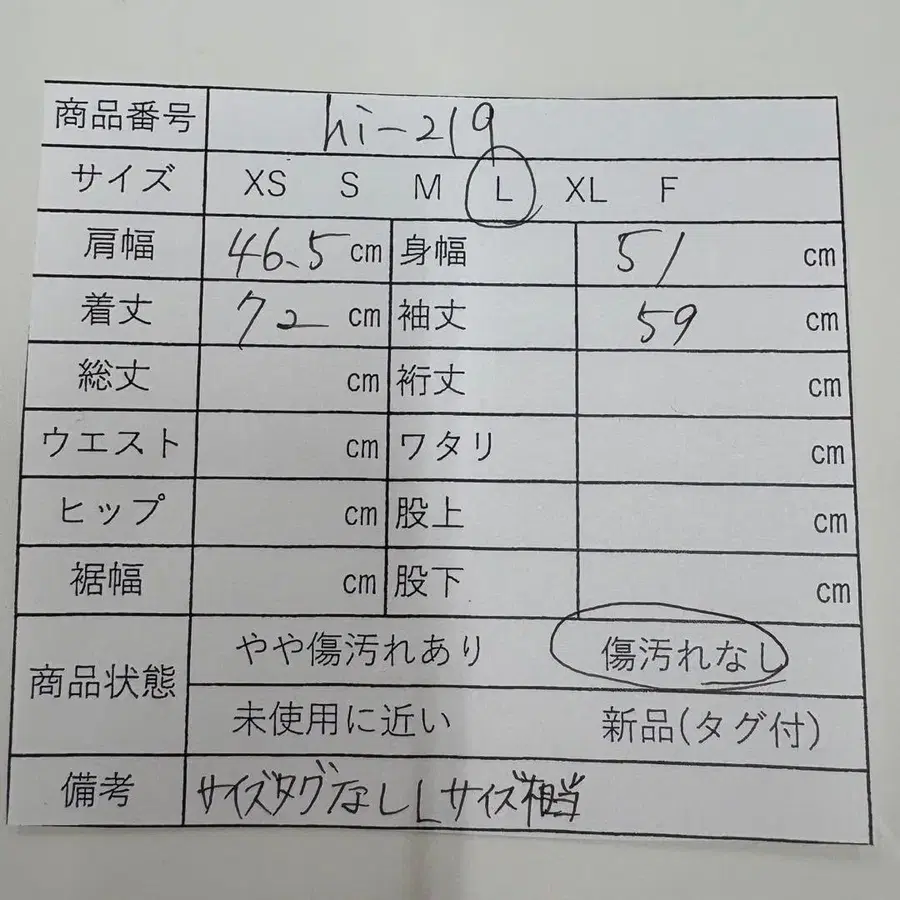 商品番号 hi-219
サイズ XS S M L XL F
肩幅 46.5 cm 身幅 51 cm
着丈 72 cm 袖丈 59 cm
総丈 cm 裄丈 cm
ウエスト cm ワタリ cm
ヒップ cm 股上 cm
裾幅 cm 股下 cm
商品状態 やや傷汚れあり 傷汚れなし
未使用に近い 新品(タグ付)
備考 サイズタグなしLサイズ相当